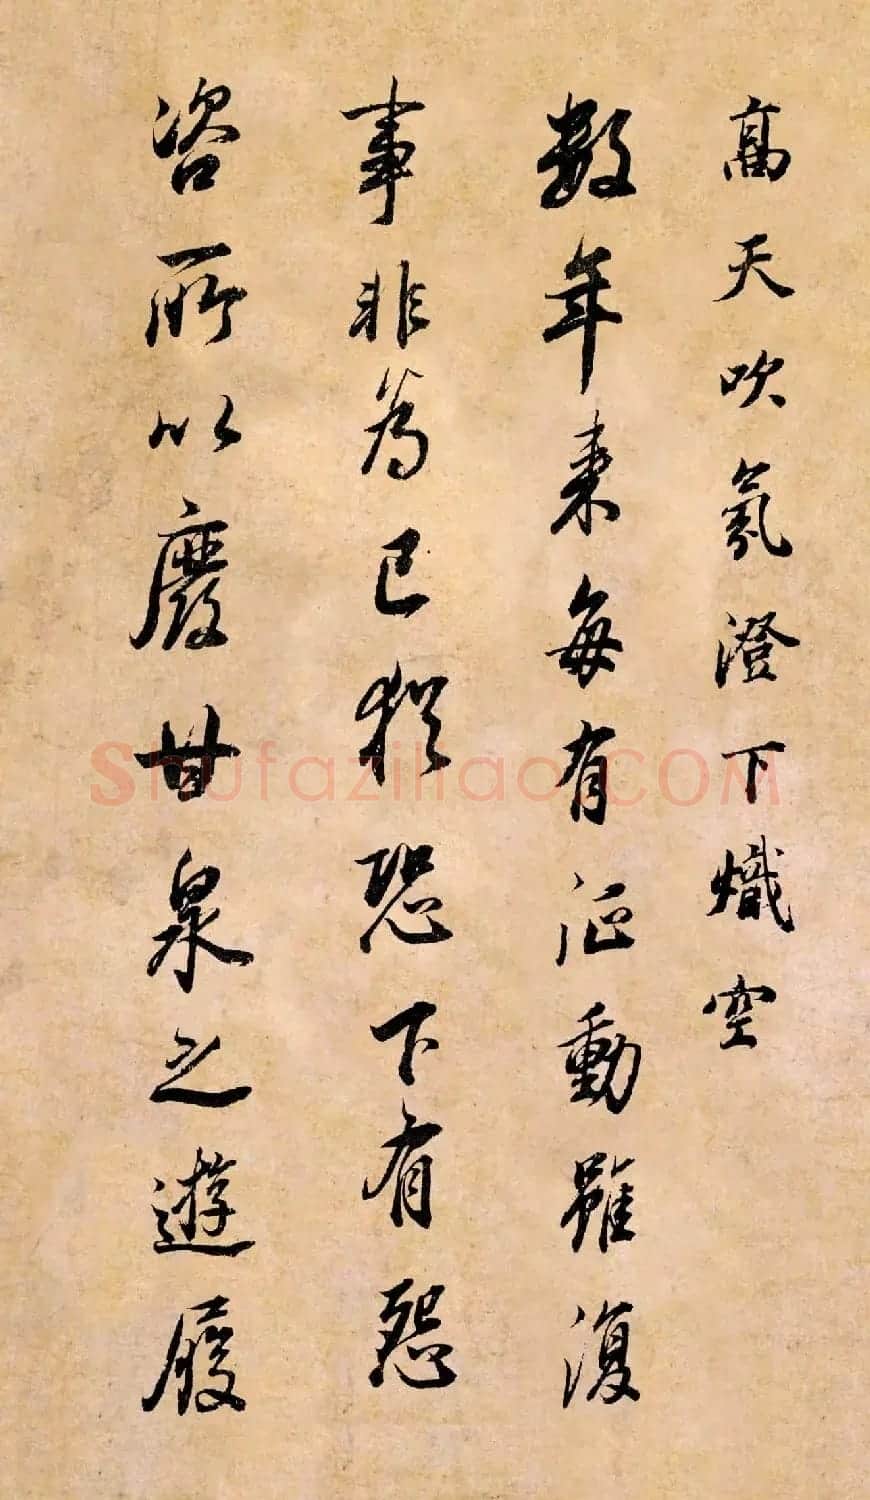 高天吹氣澄下熾空
數年來每有征動雖復
事非為己猶恐下有怨
咨所以廢甘泉之遊履
Shufaziliao.COM